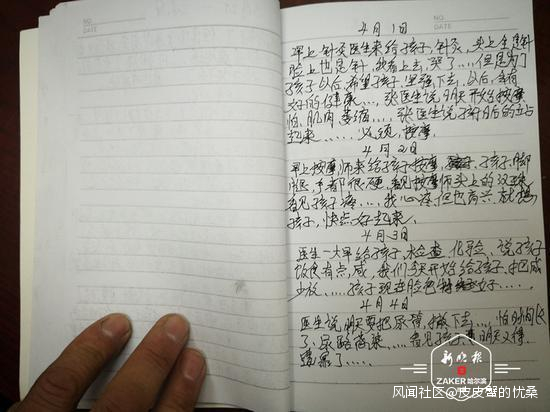 NO.
DATE
NO.
DATE
4月1日
早上针灸医生来给孩子,针灸,头上全是针
脸上也是针,我看上去,哭了....但是为了
孩子以后,希望孩子,坚强下去,以后,会有
好的健康...,张医生说,明天开始按摩
怕,肌肉萎缩....张医生说了好月后的站
起来......必须,按摩.
4月2日
早上按摩师来给孩子按摩,孩子,脚
很,手都很硬,看见按摩师头上的汉珠
看见孩子疼...,我心疼,但也高兴,就想
孩子,快点好起来.
4月3日
医生一大早给孩子,检查,化验,说孩子
饮食有点,咸,我们今天开始给孩子,把咸
少放......孩子现在脸色好......
4月4日
医生说,明天要把尿管,撤下去...,怕时间长
了,尿路感染....看见孩子,明天又得
遭罪了.....
新晚报
ZAKER哈尔滨
风闻社区@皮皮蟹的忧桑